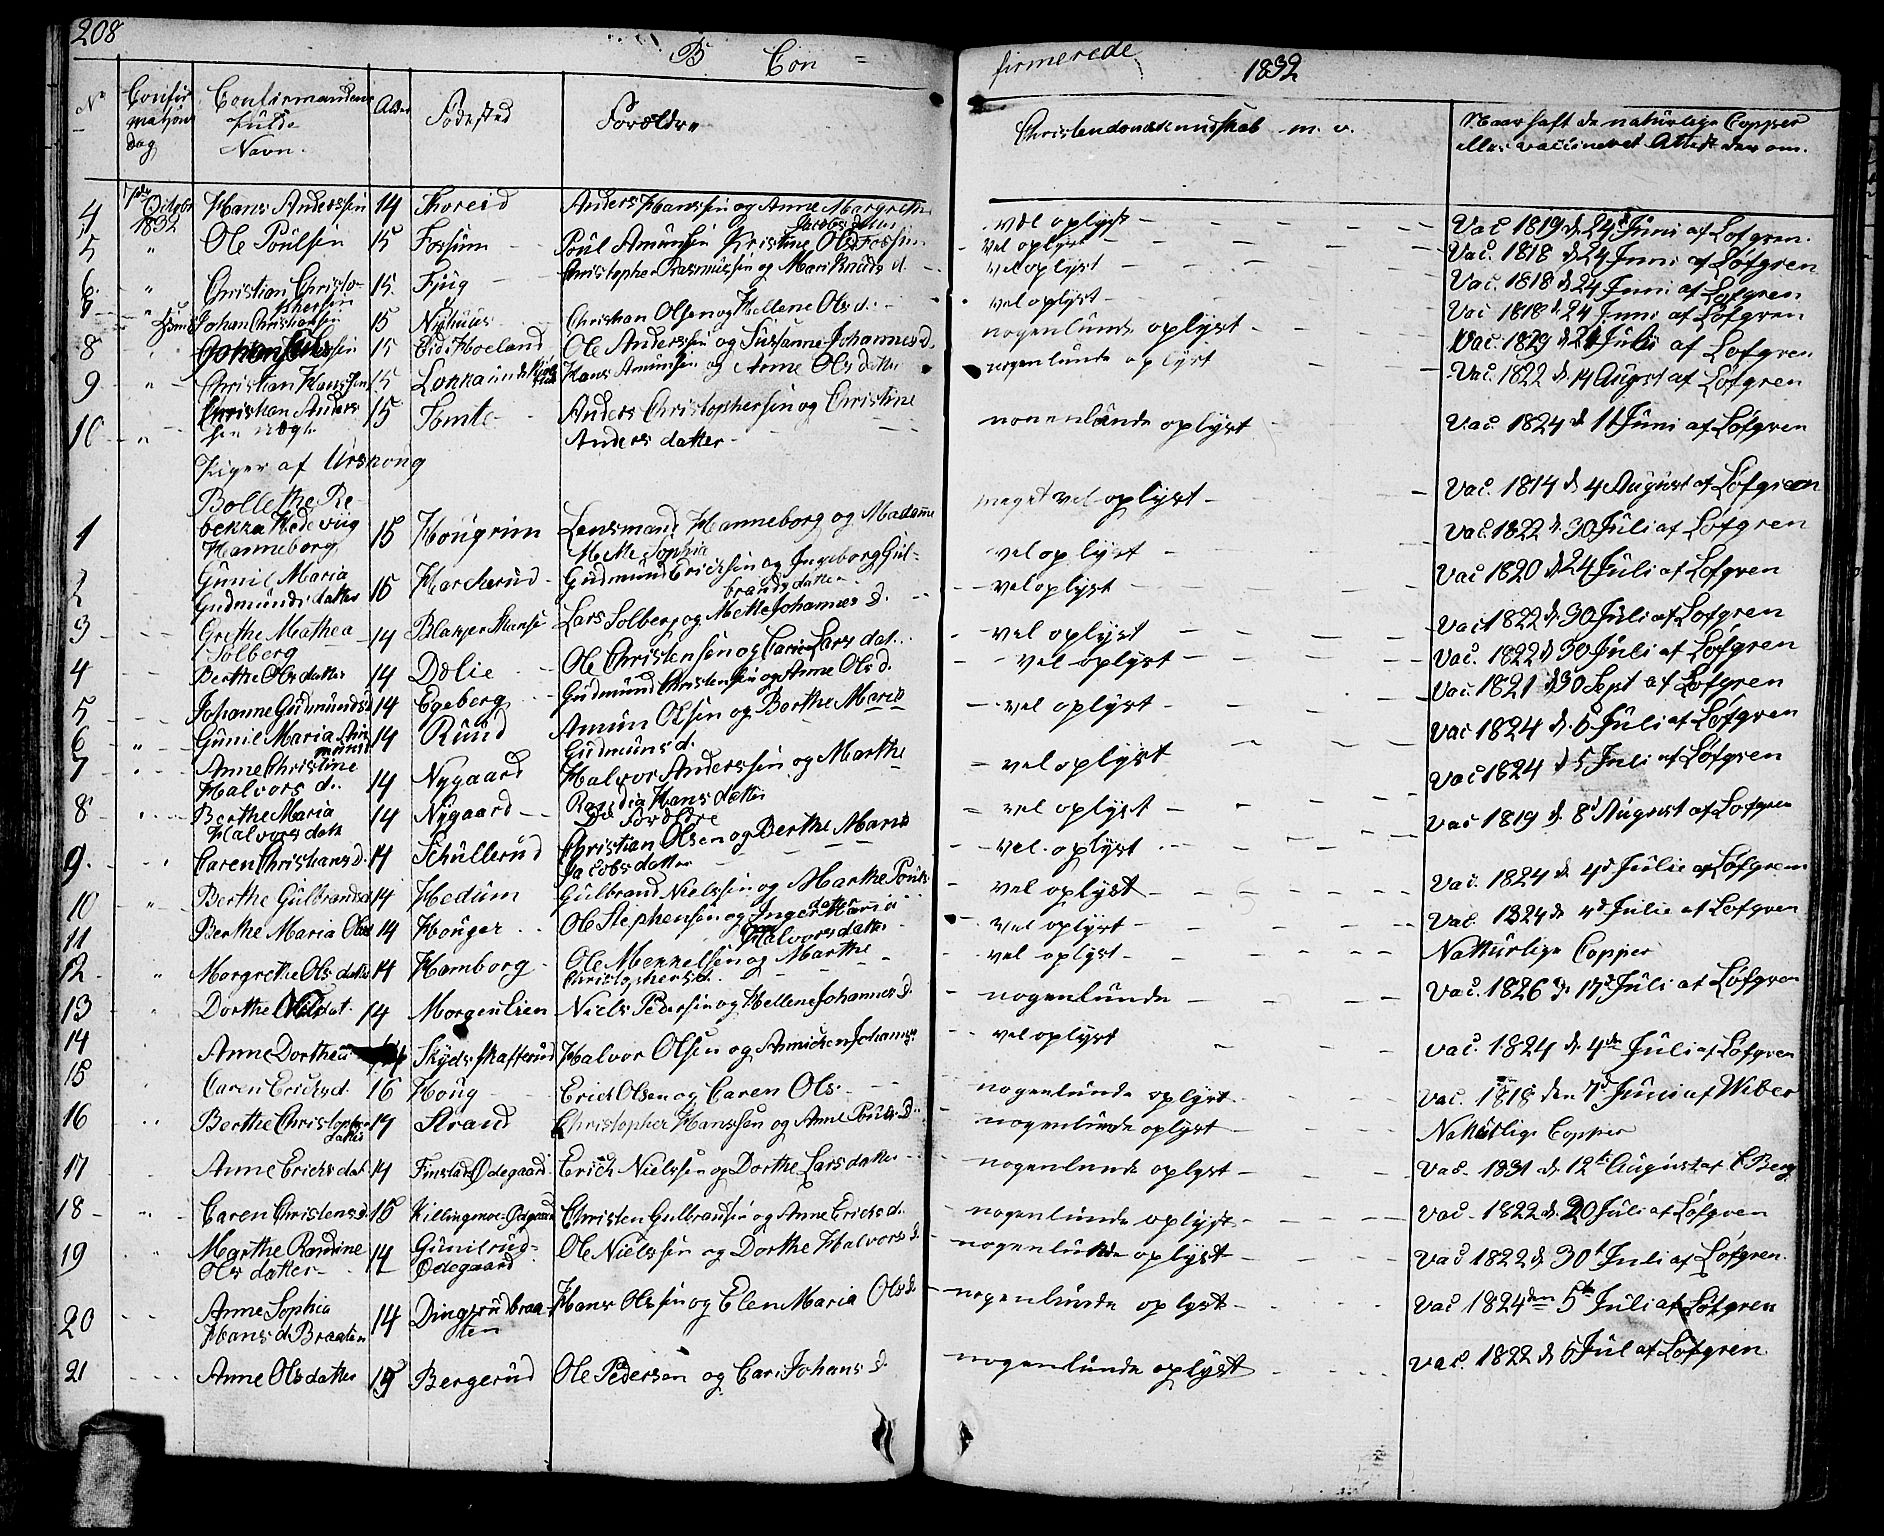 208
B Con = firmerede 1832
No Confirmations dag Confirmandens fulde Navn. Alder Fødested Forældre Christendomskundskab m. v. Naar haft de naturlige Copper eller vaccineret Attest derom.
4 October 1832 Hans Anderssen 14 Thoreid Anders Hanssen og Anne Margrethe Jacobsdatter vel oplyst Vac 1819 d 24d Juni af Løfgren.
5 " Ole Poulsen 15 Fossum Poul Amunsen Kristine Olsd Fossum vel oplyst Vac. 1818 d 24 Juni af Løfgren
6. " Christian Christophersen 15 Fjug Christopher Rasmussen og Mari Knuds d. vel oplyst Vac. 1818 d 24 Juni af Løfgren
7 " Johan Christiansen 15 Christian Olsen og Hellene Ols d. vel oplyst Vac 1818 d 24 Juni af Løfgren
8 15 Eids Hoeland Ole Anderssen og Susanne Johannes d. nogenlunde oplyst Vac. 1829 d 21 Juli af Løfgren
9 " Christian Hanssen 15 Hans Amunsen og Anne Olsdatter nogenlunde oplyst Vac. 1822 d 14 Augst af Løfgren
10 " Christian Anderssen 15 Tomte Anders Christophersen og Christine Anders datter nonenlunde oplyst Vac. 1824 d 11 Juni af Løfgren
Piger af Urskoug
1 Bollethe Rebekka Hedevig Hanneborg 15 Hougrim Lensmand Hanneborg og Madame Mette Sophie meget vel oplyst Vac. 1814 d 4 August af Løfgreen
2 Gunil Maria Gudmundsdatter 15 Harkerud Gudmund Erichsen og Ingeborg Gulbrandsdatter vel oplyst Vac. 1822 d. 30 Juli af Løfgren
3 Grethe Mathea Solberg 14 Lars Solberg og Mette Johannes d. vel oplyst Vac 1820 d 24 Juli af Løfgren
4 Berthe Olsdatter 14 Dølie Ole Christensen og Carine Lars dat. vel oplyst Vac 1822 d 30 Juli af Løfgren
5 Johanne Gudmundsd 14 Egeberg Gudmund Christensen og Anne Ols d. vel oplyst Vac. 1822 d 30 Juli af Løfgren
6 " Gunil Maria Amunsd 14 Rund Amun Olsen og Berthe Maria Gudmuns d. vel oplyst Vac 1821 d 30 Sept af Løfgren
7 Anne Christine Halvors d. 14 Nygaard Halvor Anderssen og Marthe Randia Hans datter vel oplyst Vac 1824 d. 6 Juli af Løfgren
8 Berthe Maria Halvorsdatt 14 Nygaard Do Forældre vel oplyst Vac 1824 d 5 Juli af Løfgren
9. Caren Christians d. 14 Schullerud Christian Olsen og Berthe Maria Jacobsdatter vel oplyst Vac 1819 d. 8d August af Løfgren
10 Berthe Gulbrandsd 14 Hedum Gulbrand Nielssen og Marthe Pouls datter vel oplyst Vac. 1824 d 4d Julie af Løfgren
11 Berthe Maria Olsd 14 Houger Ole Stephensen og Inger Maria Halvorsdatter vel oplyst Vac. 1824 d 4d Julie af Løfgren
12 " Margrethe Ols datter 14 Hamborg Ole Mekkelsen og Marthe Christophersd. vel oplyst Natturlige Copper
13 Dorthe Nilsdat. 14 Morgenlien Niels Pedersen og Hellene Johannes d. nogenlunde Vac. 1826 d 17d Juli af Løfgren
14 Anne Dorthea 14 Skydsskafterud Halvor Olsen og Annichen Johanns vel oplyst Vac. 1824 d. 4de Juli af Løfgren
15 Caren Erichs d. 16 Houg Erich Olsen og Caren Ols nogenlunde oplyst Vac. 1818 den 7d Juni af Wiber
16 Berthe Christophersdatter 14 Strand Christopher Hanssen og Anne Pouls d. nogenlunde oplyst Natturlige Copper
17 Anne Erichs dat 14 Finstad Ødegaard Erich Nielssen og Dorthe Lars datter nogenlunde oplyst Vac. 1831 d 12te August af C Berg
18 Caren Christens d. 15 Killingmoe Ødegaard Christen Gulbransen og Anne Erichs d. nogenlunde oplyst Vac. 1822 d. 20 Juli af Løfgren
19 Marthe Randine Ols datter 14 Gunilrud Ødegaard Ole Nielssen og Dorthe Halvors d. nogenlunde oplyst Vac 1822 d. 30t Juli af Løfgren.
20 Anne Sophia Hans d. Braaten 14 Dingsrudbraaten Hans Olssen og Elen Maria Ols d nogenlunde oplyst Vac 1824 den 5te Juli af Løfgren
21 Anne Ols datter 15 Bergerud Ole Pedersen og Cari Johans d. nogenlunde oplyst Vac. 1822 d 6 Jul af Løfgren